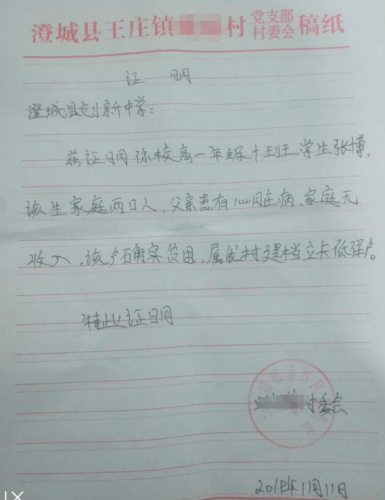 澄城县王庄镇 村 党支部 村委会 稿纸
证明
澄城县刘新中学:
兹证明你校高一年级十班 学生张博,
该生家庭两口人,父亲患有心脏病,家庭无
收入,该户确实贫困,属我村建档立卡低保户。
特此证明
村委会
2018年11月11日